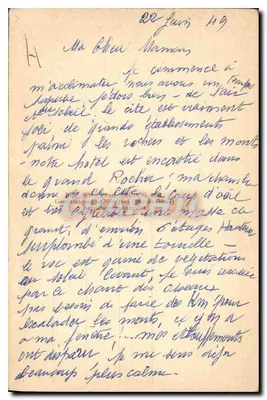 22 Juin 49
Ma Chère Maman
je commence à
m'acclimater nous avons un temps
superbe, je dors bien - de l'air
du soleil le site est vraiment
joli de grands établissements
parmi les rochers et les monts -
notre hotel est encastré dans
le grand Rocher; ma chambre
donne le coup d'œil
est masse de
granit, d'environ étages Hauteur
surplombé d'une tourelle -
le roc est garni de végétations
au soleil levant, je suis
par le chant des oiseaux
pas besoin de faire des Km pour
escalader les monts, il y en a
à ma fenêtre!... mes étouffements
ont disparu je me sens déjà
beaucoup plus calme.